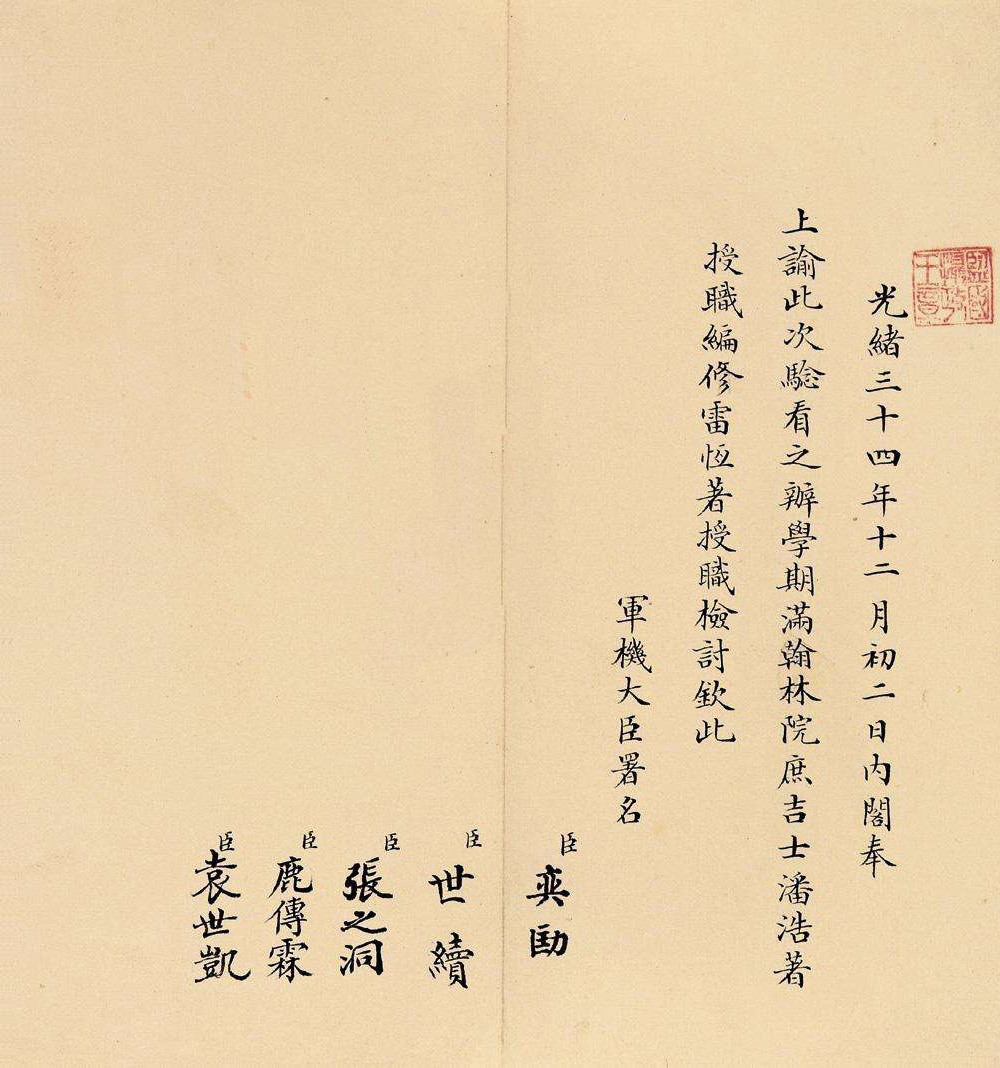 監國攝政王章
光緒三十四年十二月初二日内閣奉
上諭此次騐看之辦學期滿翰林院庶吉士潘浩著
授職編修雷恆著授職檢討欽此
軍機大臣署名
臣奕劻
臣世續
臣張之洞
臣鹿傳霖
臣袁世凱